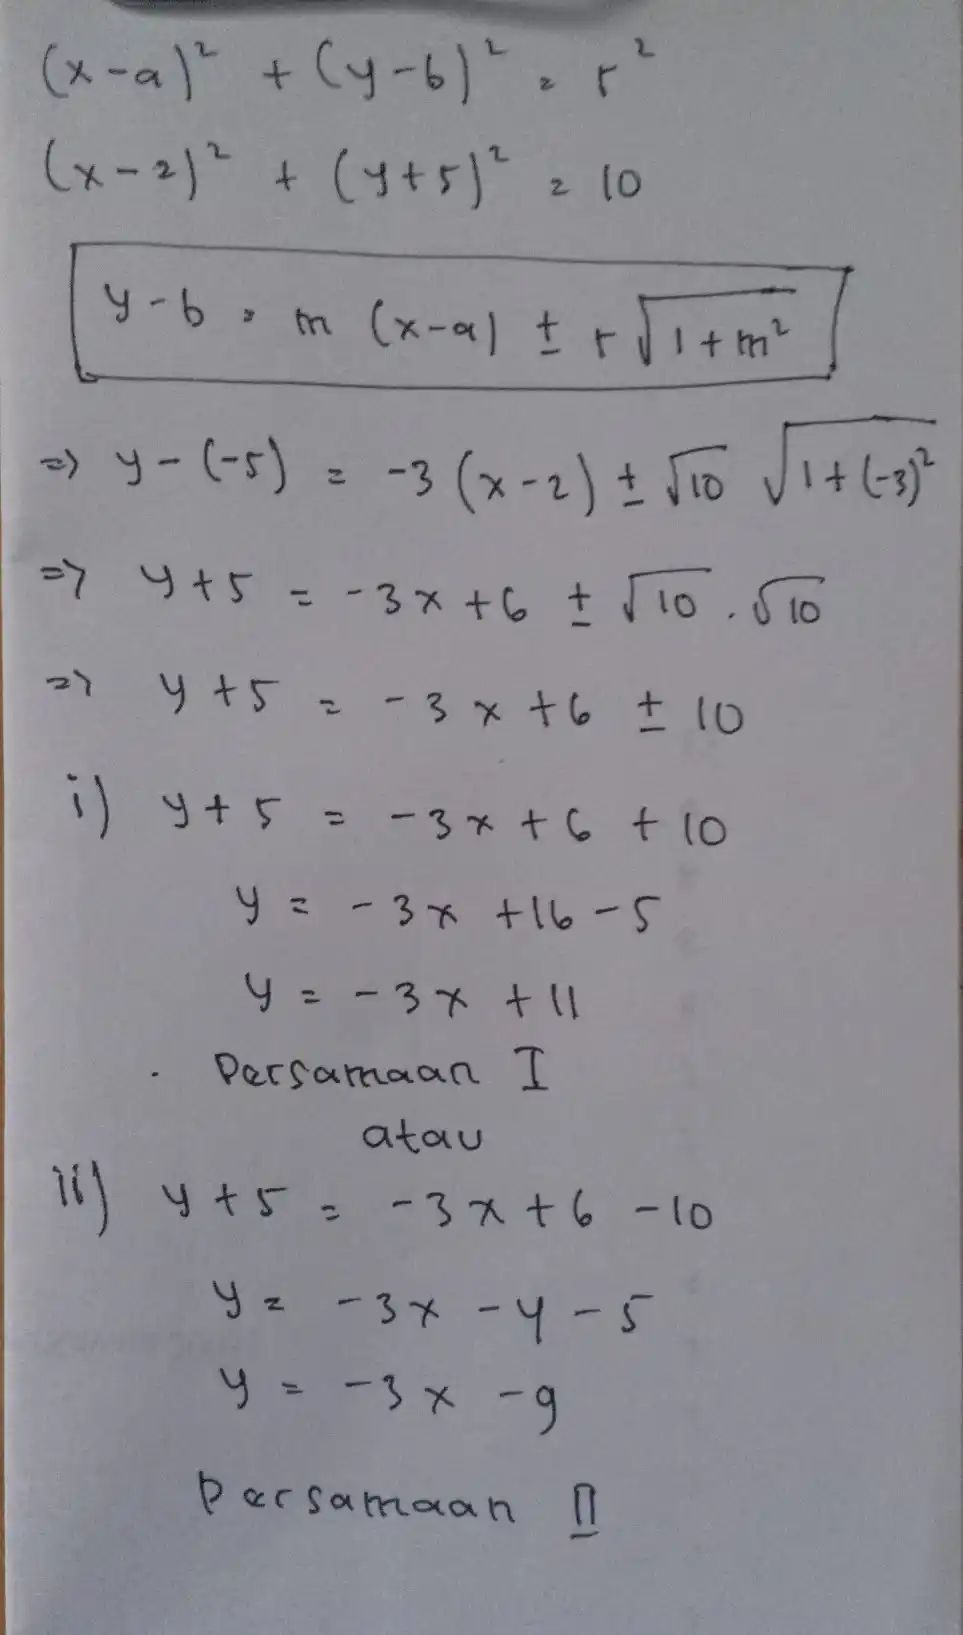 (x-a)² + (y-b)² = r²
(x-2)² + (y+5)² = 10
y-b = m (x-a) ± r√(1+m²)
=> y-(-5) = -3(x-2) ± √10 √(1+(-3)²)
=> y+5 = -3x+6 ± √10 . √10
=> y+5 = -3x+6 ± 10
i) y+5 = -3x+6 +10
y = -3x +16-5
y = -3x +11
Persamaan I
atau
ii) y+5 = -3x+6 -10
y = -3x -4-5
y = -3x -9
Persamaan II